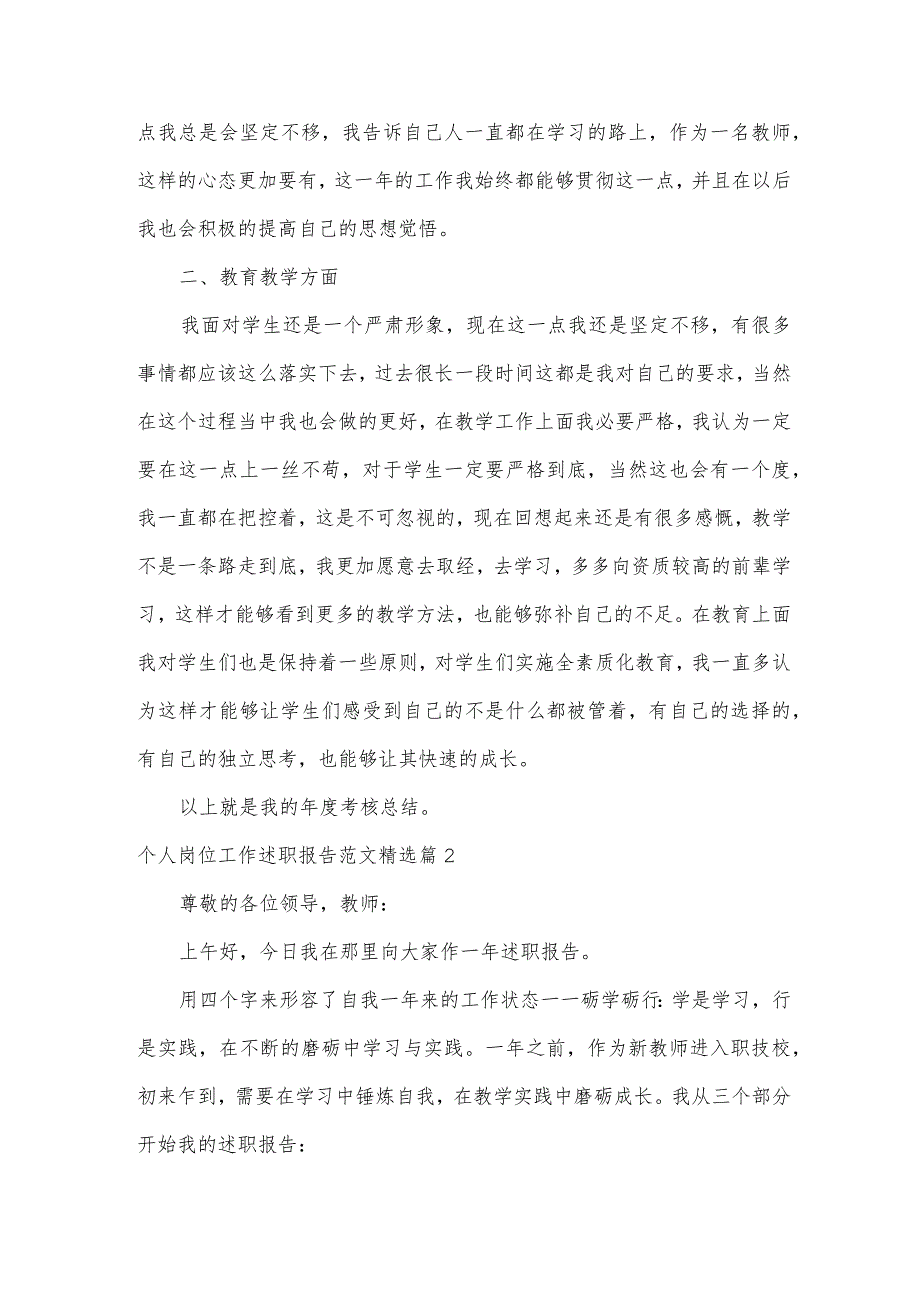 点我总是会坚定不移，我告诉自己人一直都在学习的路上，作为一名教师，
这样的心态更加要有，这一年的工作我始终都能够贯彻这一点，并且在以后
我也会积极的提高自己的思想觉悟。
二、教育教学方面
我面对学生还是一个严肃形象，现在这一点我还是坚定不移，有很多
事情都应该这么落实下去，过去很长一段时间这都是我对自己的要求，当然
在这个过程当中我也会做的更好，在教学工作上面我必要严格，我认为一定
要在这一点上一丝不苟，对于学生一定要严格到底，当然这也会有一个度，
我一直都在把控着，这是不可忽视的，现在回想起来还是有很多感慨，教学
不是一条路走到底，我更加愿意去取经，去学习，多多向资质较高的前辈学
习，这样才能够看到更多的教学方法，也能够弥补自己的不足。在教育上面
我对学生们也是保持着一些原则，对学生们实施全素质化教育，我一直多认
为这样才能够让学生们感受到自己的不是什么都被管着，有自己的选择的，
有自己的独立思考，也能够让其快速的成长。
以上就是我的年度考核总结。
个人岗位工作述职报告范文精选篇2
尊敬的各位领导，教师：
上午好，今日我在那里向大家作一年述职报告。
用四个字来形容了自我一年来的工作状态一一砺学砺行：学是学习，行
是实践，在不断的磨砺中学习与实践。一年之前，作为新教师进入职技校，
初来乍到，需要在学习中锤炼自我，在教学实践中磨砺成长。我从三个部分
开始我的述职报告：